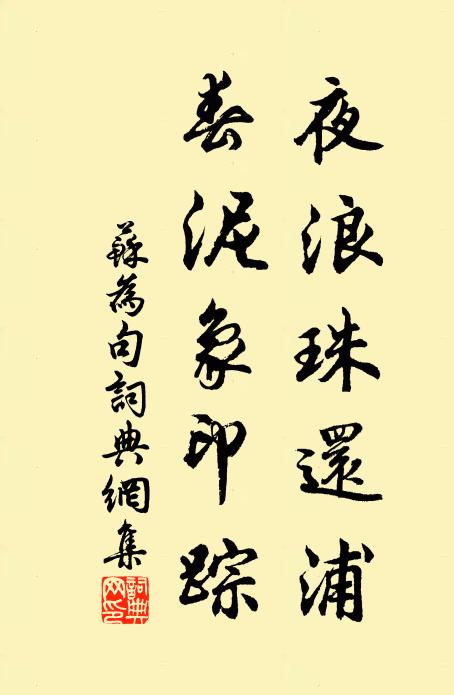 夜浪珠還浦
春泥象印踪
蘇為句詞典網集
詞典網印